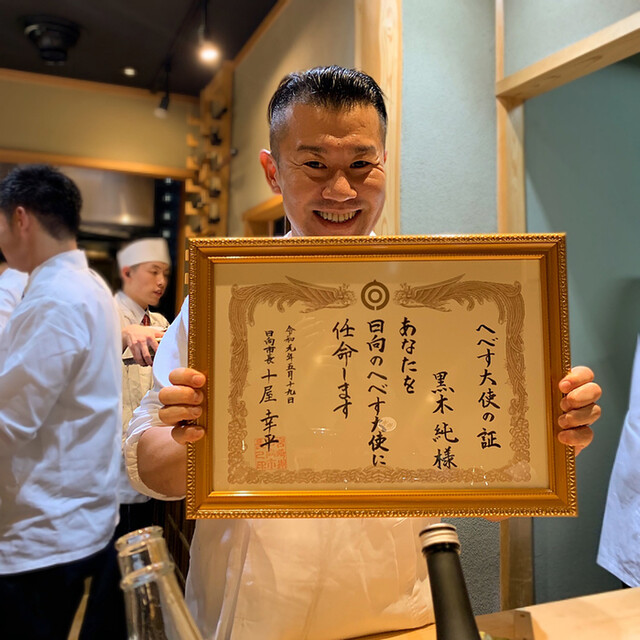 へべす大使の証
黒木純様
あなたを
日向のへべす大使に
任命します
令和元年五月十九日
日向市長 十屋幸平